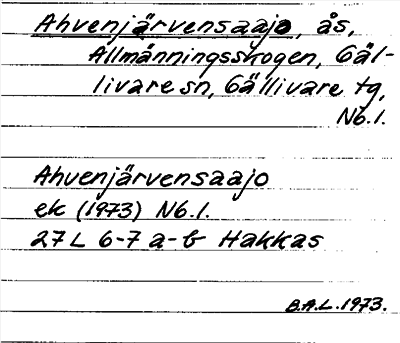 Ahvenjärvensaajo, ås,
Allmänningsskogen, Gäl-
livare sn, Gällivare tg,
Nb.l.
Ahvenjärvensaajo
ek (1973) Nb.l.
27L 6-7 a-b Hakkas
B.A.L. 1973.